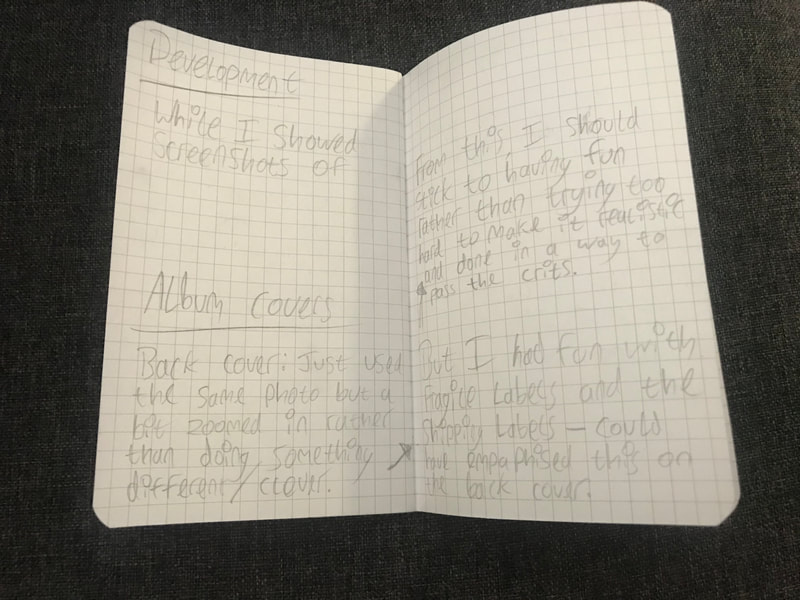 Development
While I showed
screenshots of
Album covers
Back cover: Just used
the same photo but a
bit zoomed in rather
than doing something
different/clever.
From this, I should
stick to having fun
rather than trying too
hard to make it realistic
and done in a way to
pass the crits.
But I had fun with
Fragile labels and the
Shipping labels – could
have empaphised this on
the back cover.